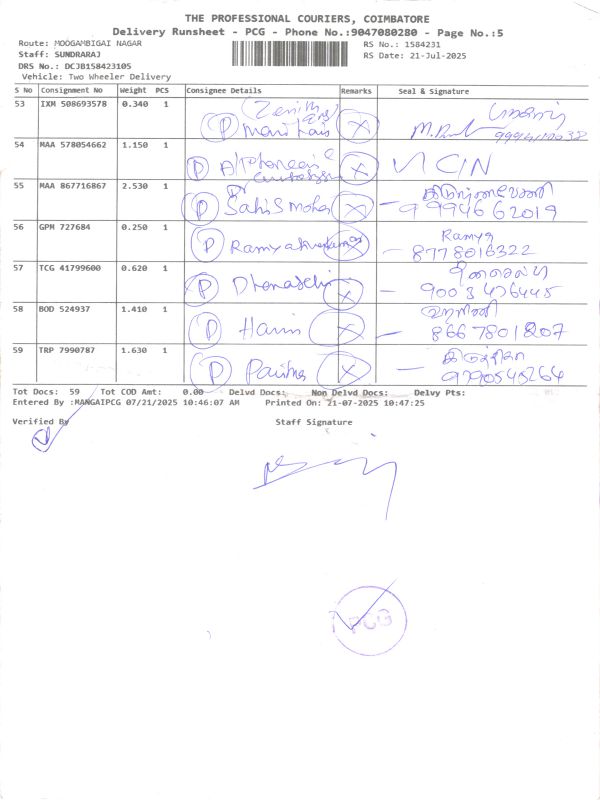 THE PROFESSIONAL COURIERS, COIMBATORE
Delivery Runsheet - PCG - Phone No.:9047080280 - Page No.:5
Route: MOOGAMBIGAI NAGAR
RS No.: 1584231
Staff: SUNDRARAJ
RS Date: 21-Jul-2025
DRS No.: DCJB158423105
Vehicle: Two Wheeler Delivery
S No Consignment No Weight PCS Consignee Details Remarks Seal & Signature
53 IXM 508693578 0.340 1 P X
54 MAA 578054662 1.150 1 P X
55 MAA 867716867 2.530 1 P Dr X
9994662019
56 GPM 727684 0.250 1 P X Ramya
8778016322
57 TCG 41799600 0.620 1 P X
9003476445
58 BOD 524937 1.410 1 P X
8667801807
59 TRP 7990787 1.630 1 P X
9790545264
Tot Docs: 59 Tot COD Amt: 0.00 Delvd Docs: Non Delvd Docs: Delvy Pts:
Entered By :MANGAIPCG 07/21/2025 10:46:07 AM Printed On: 21-07-2025 10:47:25
Verified By Staff Signature
PCG